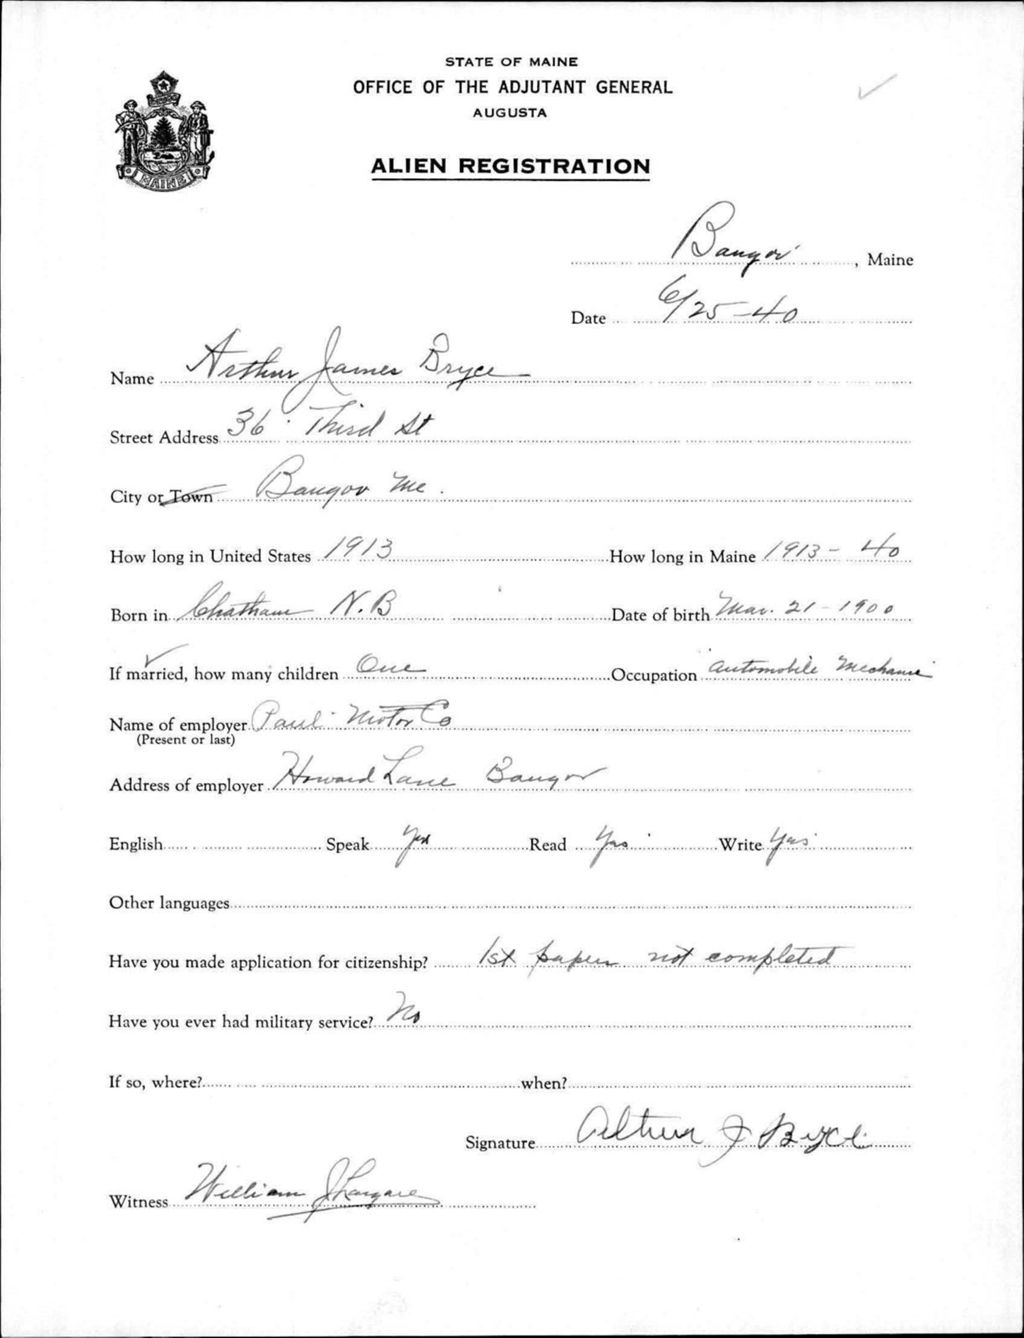 STATE OF MAINE
OFFICE OF THE ADJUTANT GENERAL
AUGUSTA
ALIEN REGISTRATION
MAINE
Bangor, Maine
Date 6/25-40
Name Arthur James Bryce
Street Address 36 Third St
City or Town Bangor Me.
How long in United States 1913 How long in Maine 1913 - 40
Born in Chatham N.B Date of birth Mar. 21 - 1900
If married, how many children One Occupation Automobile Mechanic
Name of employer Paul Motor Co
(Present or last)
Address of employer Howard Lane Bangor
English Speak Yes Read Yes Write Yes
Other languages
Have you made application for citizenship? 1st papers not completed
Have you ever had military service? No
If so, where? when?
Signature Arthur J Bryce
Witness William J